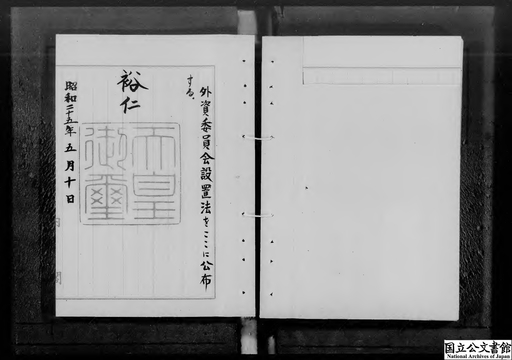 外資委員会設置法をここに公布
する。
裕仁
天皇
御璽
昭和二十五年五月十日
内閣
国立公文書館
National Archives of Japan